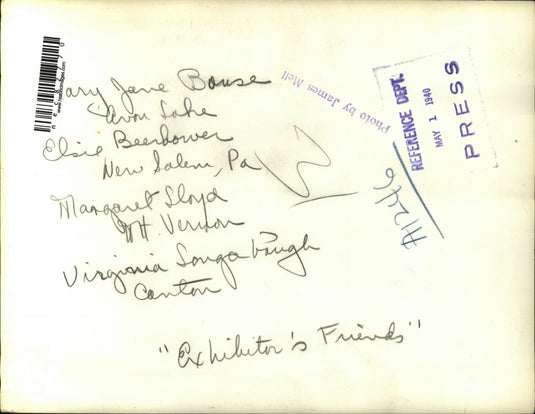 ary Jane Bouse
Avon Lake
Elsie Beerbower
New Salem, Pa
Margaret Lloyd
Mt. Vernon
Virginia Longabaugh
Canton
"Exhibitor's Friends"
Photo by James Mell
REFERENCE DEPT.
MAY 1 1940
PRESS